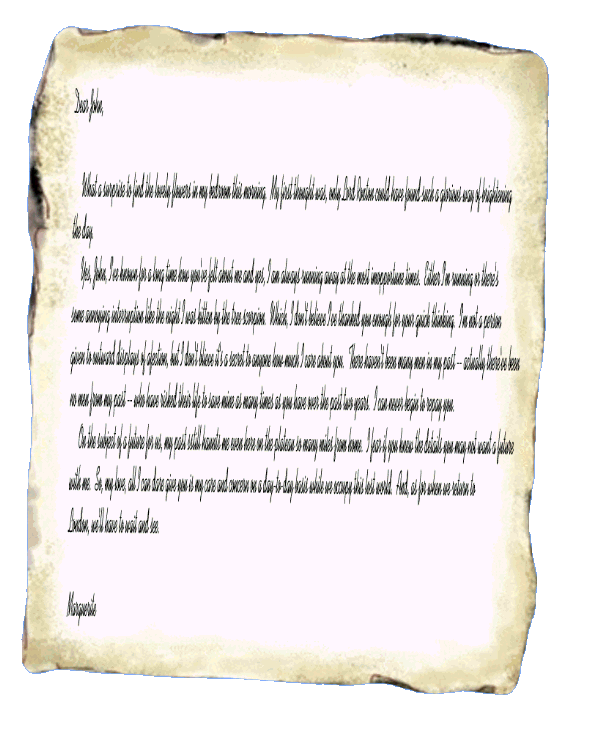 Dear John,
What a surprise to find the lovely flowers in my bedroom this morning. My first thought was, only Lord Roxton could have found such a glorious way of brightening
the day.
Yes, John, I've known for a long time how you've felt about me and yes, I am always running away at the most inopportune times. Either I'm running or there's
some annoying interruption like the night I was bitten by the tree scorpion. Which, I don't believe I've thanked you enough for your quick thinking. I'm not a person
given to outward displays of affection, but I don't believe it's a secret to anyone how much I care about you. There haven't been many men in my past -- actually there've been
no men from my past -- who have risked their life to save mine as many times as you have over the past two years. I can never begin to repay you.
On the subject of a future for us, my past still haunts me even here on the plateau so many miles from home. I fear if you knew the details you may not want a future
with me. So, my love, all I can dare give you is my care and concern on a day-to-day basis while we occupy this lost world. And, as for when we return to
London, we'll have to wait and see.
Marguerite